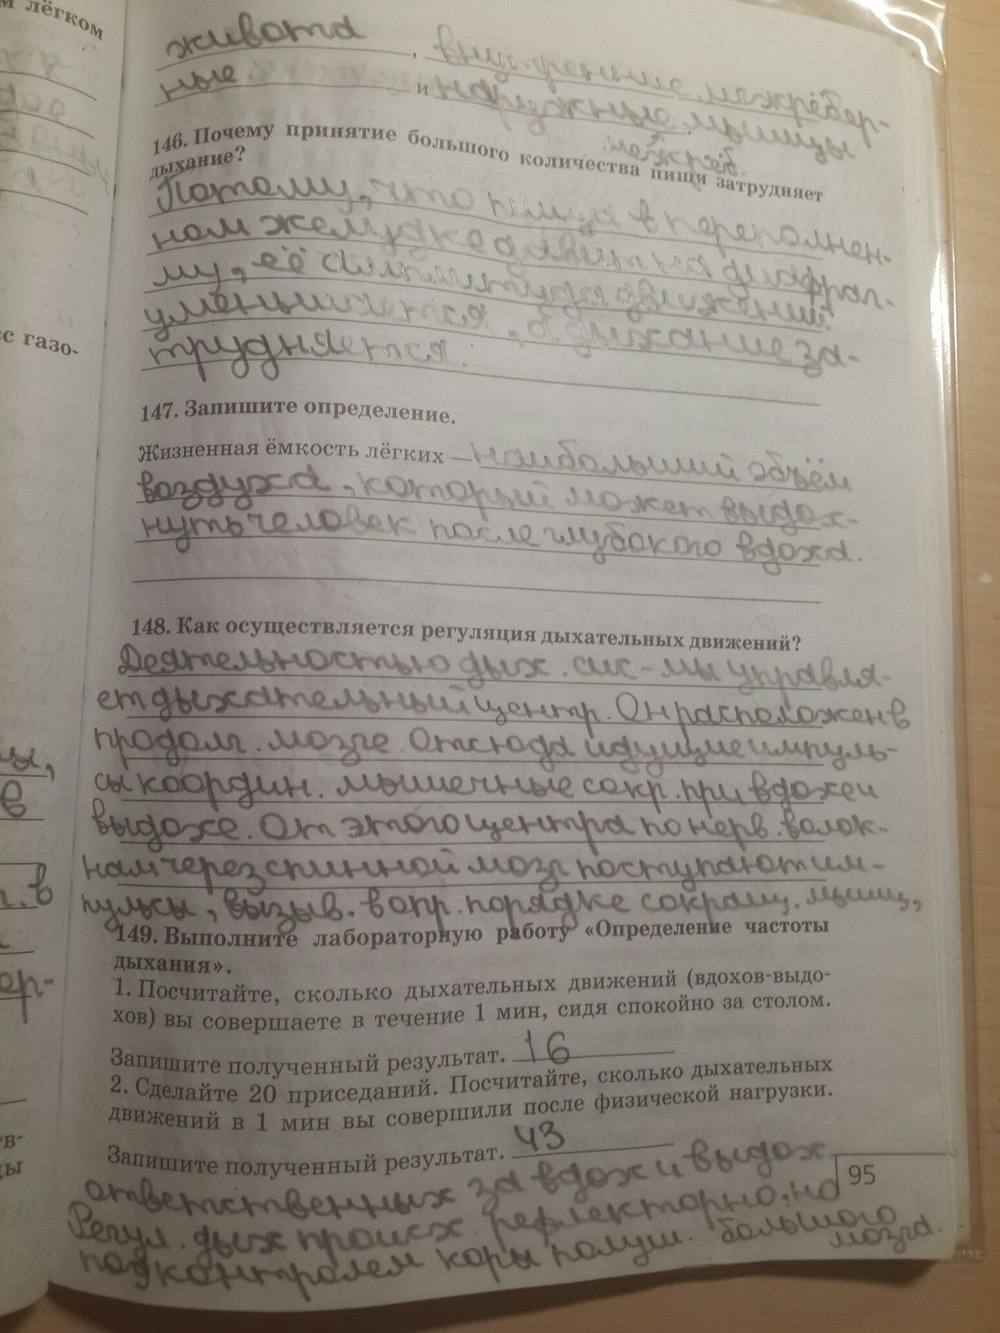 м лёгком
живота, внутренние межрёбер-
ные и наружные мышцы
межрёб.
146. Почему принятие большого количества пищи затрудняет
дыхание?
Потому, что пища в переполнен-
ном желудке давит на диафраг-
му, её амплитуда движений
уменьшается, а дыхание за-
трудняется.
с газо-
147. Запишите определение.
Жизненная ёмкость лёгких — наибольший объём
воздуха, который может выдох-
нуть человек после глубокого вдоха.
148. Как осуществляется регуляция дыхательных движений?
Деятельностью дых. сис-мы управля-
ет дыхательный центр. Он расположен в
продолг. мозге. Отсюда идущие импуль-
сы координ. мышечные сокр. при вдохе и
выдохе. От этого центра по нерв. волок-
нам через спинной мозг поступают им-
пульсы, вызыв. в опр. порядке сокращ. мышц,
149. Выполните лабораторную работу «Определение частоты
дыхания».
1. Посчитайте, сколько дыхательных движений (вдохов-выдо-
хов) вы совершаете в течение 1 мин, сидя спокойно за столом.
Запишите полученный результат. 16
2. Сделайте 20 приседаний. Посчитайте, сколько дыхательных
движений в 1 мин вы совершили после физической нагрузки.
Запишите полученный результат. 43
ответственных за вдох и выдох
95
Регул. дых происх. рефлекторно, но
под контролем коры полуш. большого
мозга.